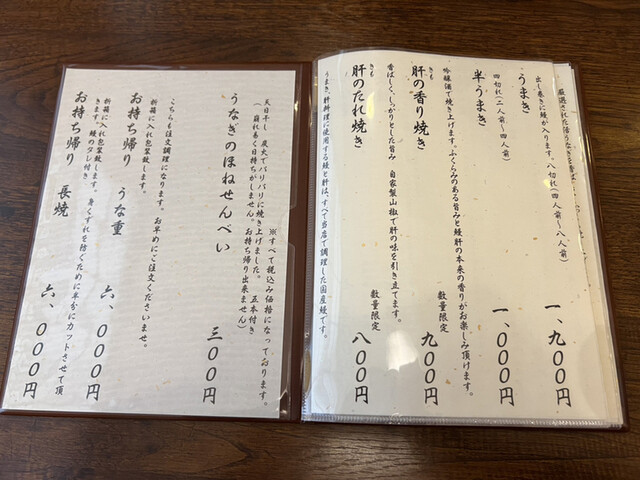 厳選された活うなぎを香ば
うまき　一、九〇〇円
出し巻きに鰻が入ります。八切れ（四人前〜八人前）
半うまき　一、〇〇〇円
四切れ（二人前〜四人前）
肝の香り焼き　数量限定　九〇〇円
きも
吟醸酒で焼き上げます。ふくらみのある旨みと鰻肝の本来の香りがお楽しみ頂けます。
肝のたれ焼き　数量限定　八〇〇円
きも
香ばしく、しっかりとした旨み　自家製山椒で肝の味を引き立てます。
うまき、肝料理に使用する鰻と肝は、すべて当店で調理した国産鰻です。
※すべて税込み価格になっております。
うなぎのほねせんべい　三〇〇円
天日干し、炭火でパリパリに焼き上げました。　五本付き
（崩れ易く日持ちがしません。お持ち帰り出来ません）
こちらも注文調理になります。お早めにご注文くださいませ。
お持ち帰り　うな重　六、〇〇〇円
折箱に入れ包装致します。
お持ち帰り　長焼　六、〇〇〇円
折箱に入れ包装致します。身くずれを防ぐために半分にカットさせて頂
きます。鰻のタレ付き